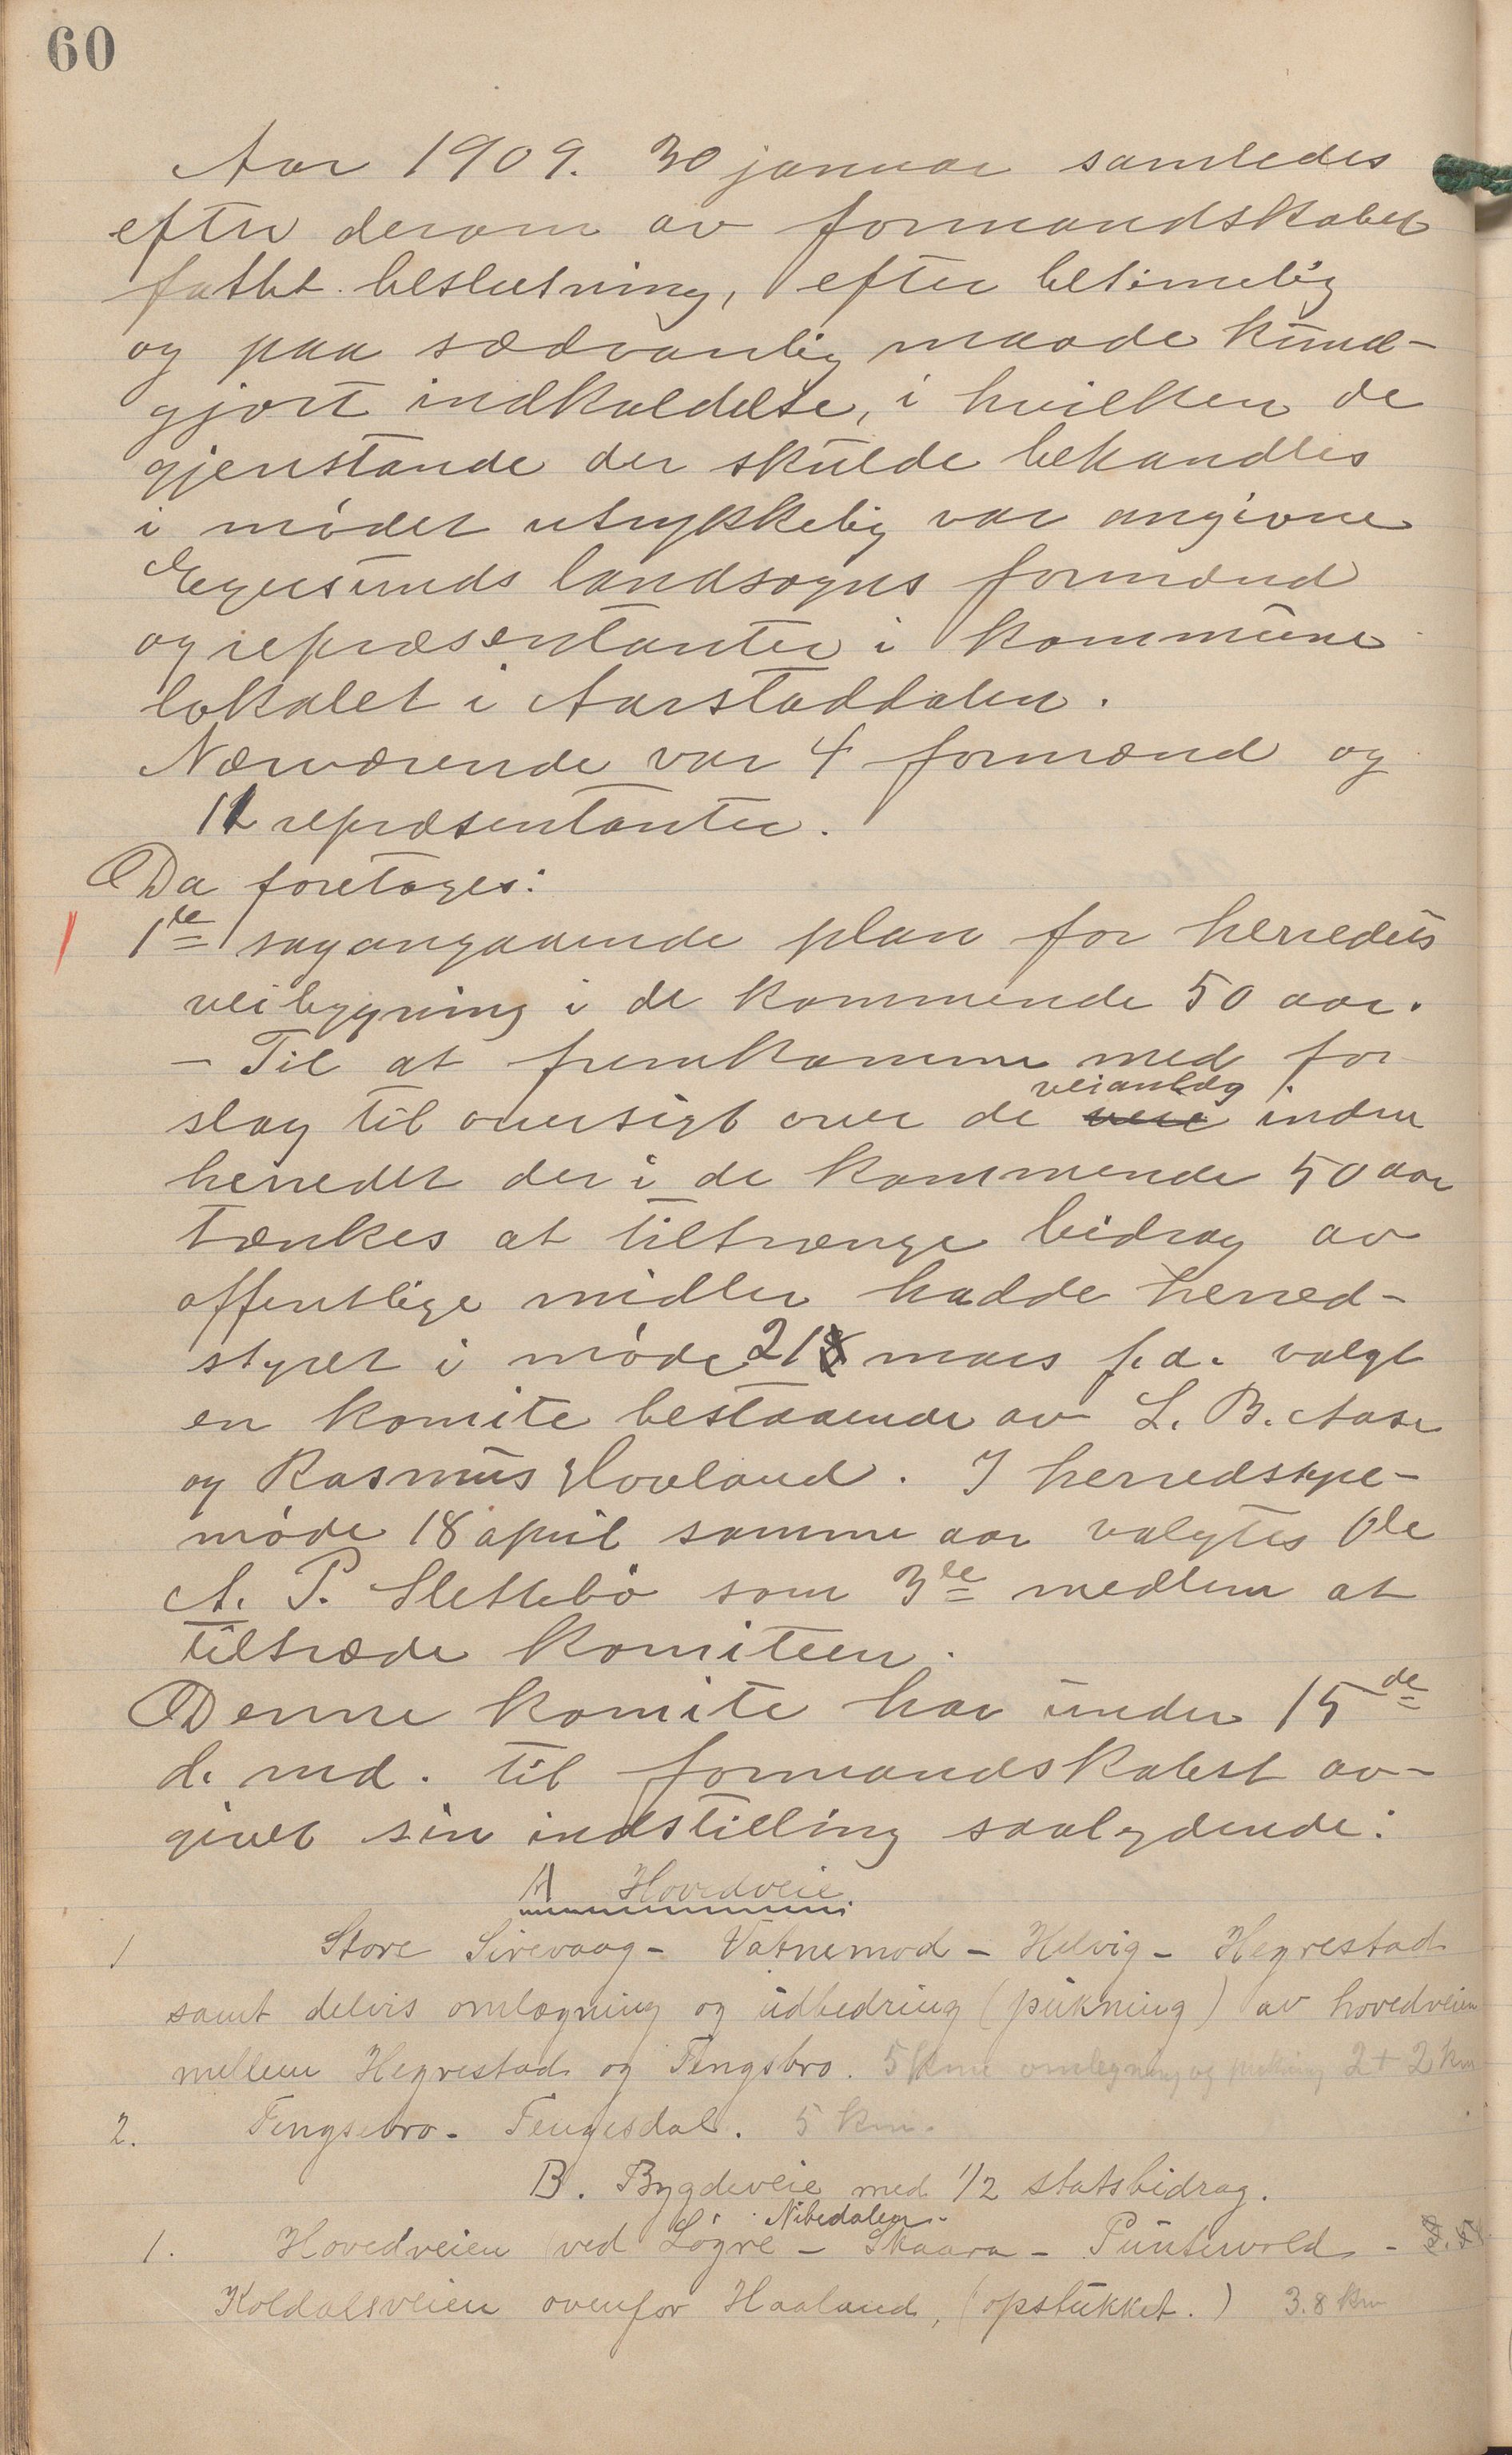 60
Aar 1909. 30 januar samledes
efter derom av formandskabet
fattet beslutning, efter betimelig
og paa sædvanlig maade kund-
gjort indkaldelse, i hvilken de
gjenstande der skulde behandles
i mødet utrykkelig var angivne
Egersunds landsogns formænd
og repræsentanter i kommune
lokalet i Aarstaddalen.
Nærværende var 4 formænd og
11 repræsentanter.
Da foretoges:
1de sag angaaende plan for herredets
veibygning i de kommende 50 aar.
- Til at fremkomme med for
slag til oversigt over de veianlæg inden
herredet der i de kommende 50 aar
tænkes at tiltrænge bidrag av
offentlige midler hadde herred-
styret i møde 21 mars f.a. valgt
en komite bestaaende av L. B. Aase
og Rasmus Hovland. I herredstyre-
møde 18 april samme aar valgtes Ole
A. P. Slettebø som 3de medlem at
tiltræde komiteen.
Denne komite har under 15de
d. md. til formandskabet av-
givet sin indstilling saalydende:
A Hovedveie.
1 Store Sirevaag - Vatnemod - Helvig - Hegrestad
samt delvis omlægning og udbedring (pukning) av hovedveien
mellem Hegrestad og Tengsbro. 5 km omlegning og pukning 2 + 2 km
2. Tengsebro - Tengesdal. 5 km.
B. Bygdeveie med 1/2 statsbidrag.
Nibedalen -
1. Hovedveien ved Løgre - Skaara - Puntervold -
Koldalsveien ovenfor Haaland, (opstukket.) 3.8 km